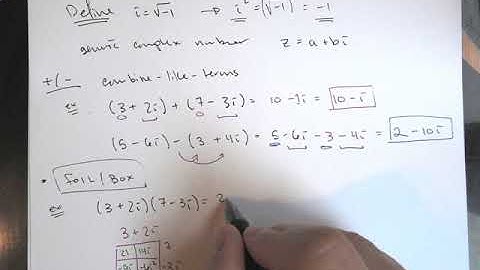 Define i=√-1 → i²=(√-1)²=-1
generic complex number z=a+bi
+/- combine-like-terms
ex (3+2i)+(7-3i)= 10-1i = 10-i
(5-6i)-(3+4i)= 5-6i-3-4i = 2-10i
• foil/Box
ex (3+2i)(7-3i)= 2
3+2i
21 14i 7
-9i -6i² -3i